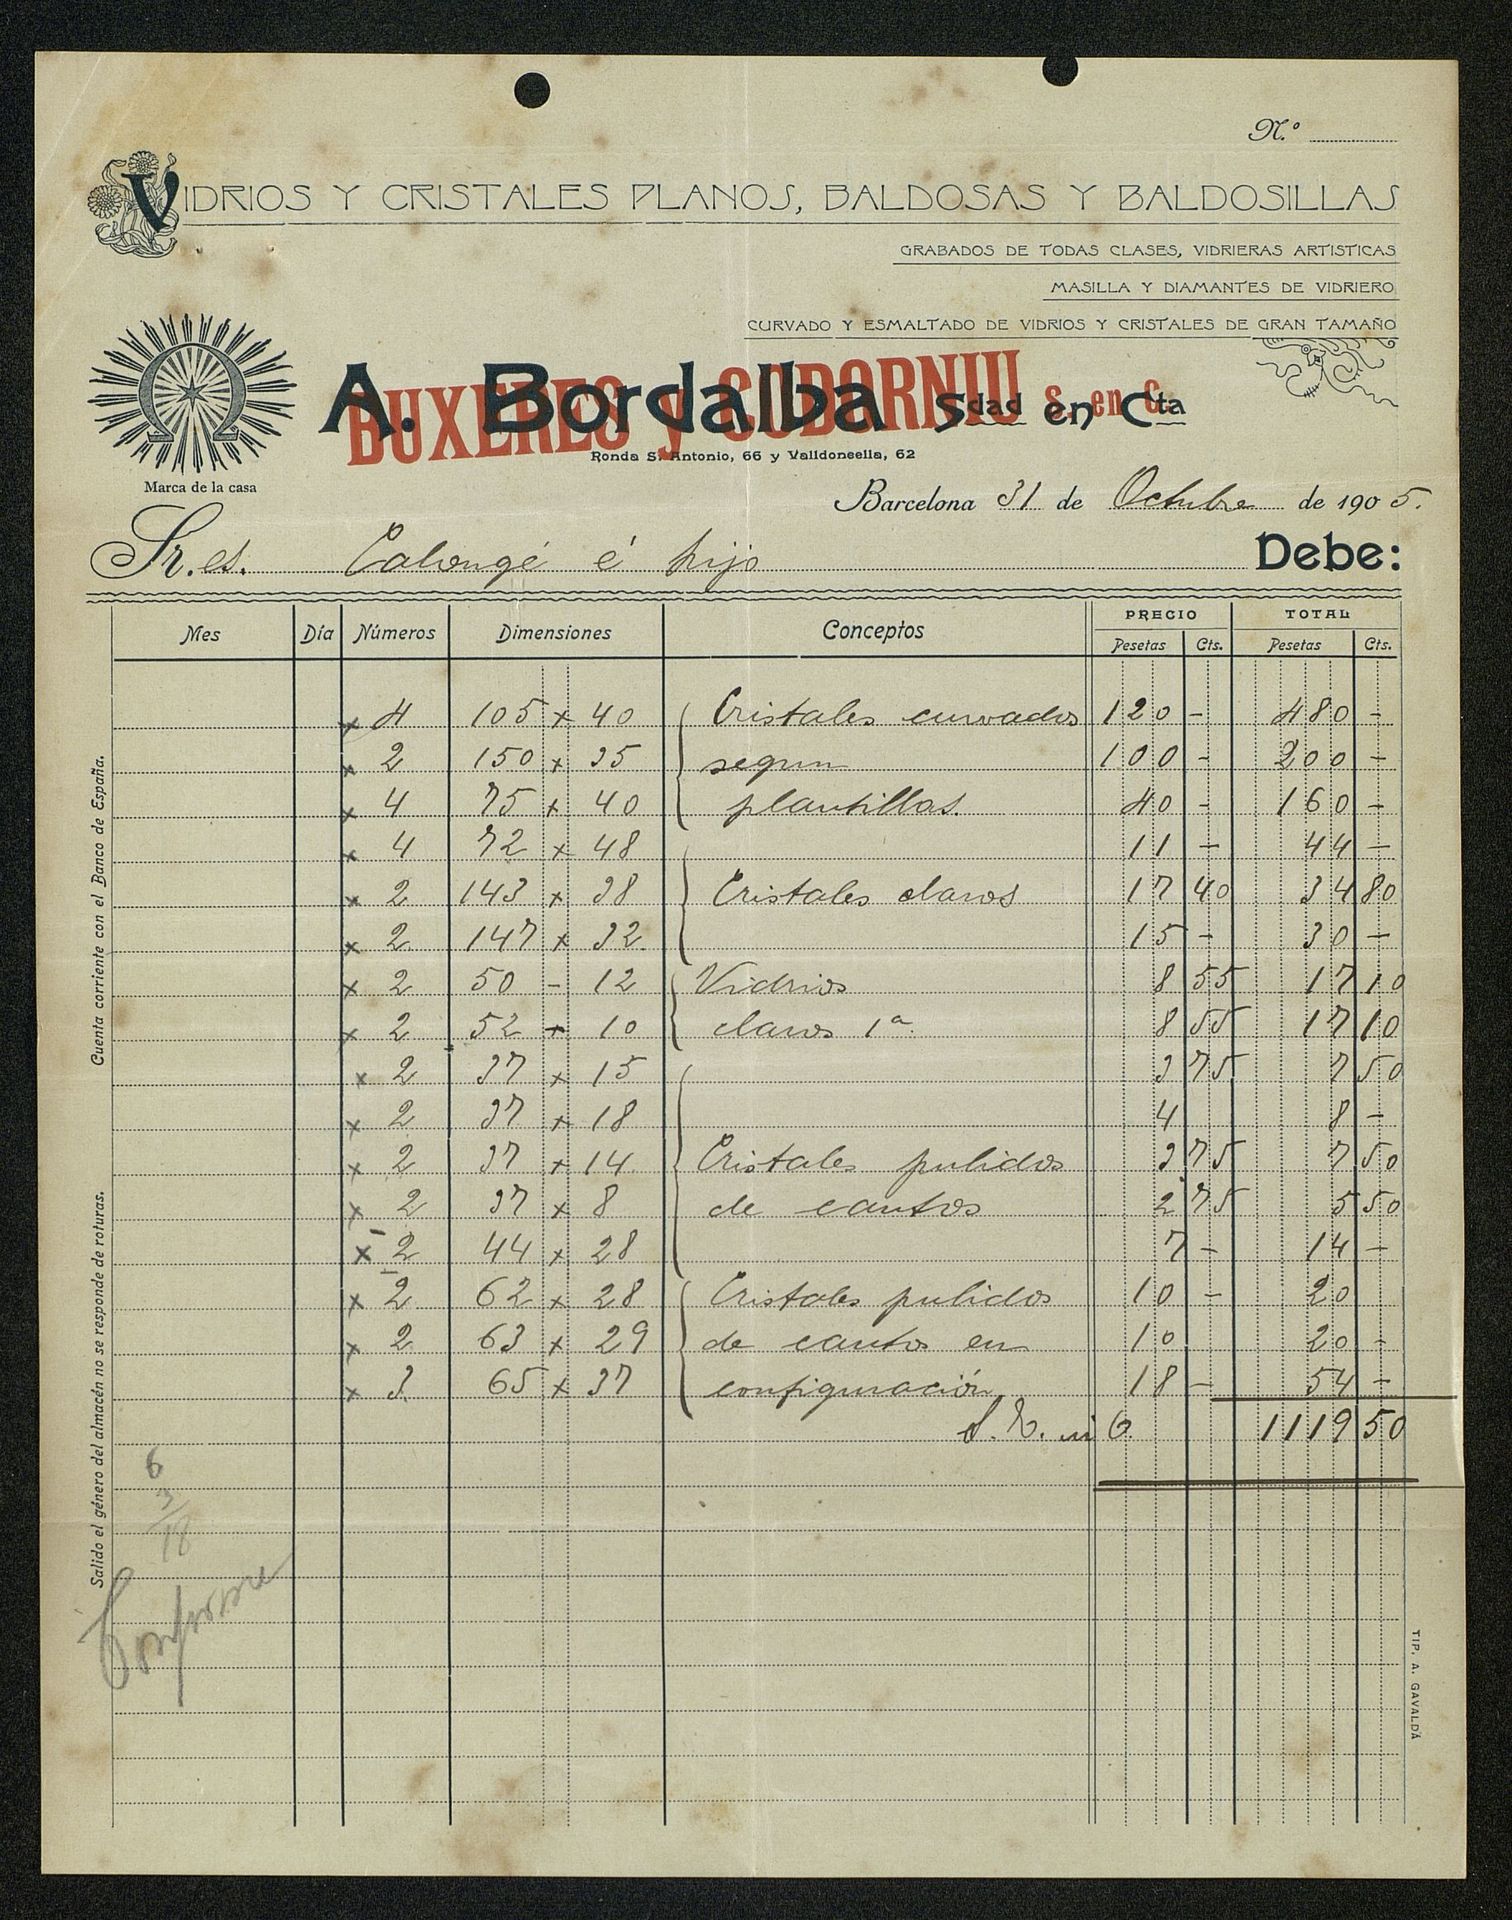 N.º
VIDRIOS Y CRISTALES PLANOS, BALDOSAS Y BALDOSILLAS
GRABADOS DE TODAS CLASES, VIDRIERAS ARTISTICAS
MASILLA Y DIAMANTES DE VIDRIERO
CURVADO Y ESMALTADO DE VIDRIOS Y CRISTALES DE GRAN TAMAÑO
Ω
Marca de la casa
A. Bordalba Sdad en Cta
BUXERES y CODORNIU S. en C.
Ronda S. Antonio, 66 y Valldoncella, 62
Barcelona 31 de Octubre de 1905.
Sr.es. Calongé é hijo Debe:
Mes Día Números Dimensiones Conceptos PRECIO TOTAL
Pesetas Cts. Pesetas Cts.
x 4 105 x 40 Cristales curvados 120 - 480 -
x 2 150 x 35 segun 100 - 200 -
x 4 75 x 40 plantillas. 40 - 160 -
x 4 72 x 48 11 - 44 -
x 2 143 x 38 Cristales claros 17 40 34 80
x 2 147 x 32 15 - 30 -
x 2 50 - 12 Vidrios 8 55 17 10
x 2 52 x 10 claros 1ª 8 55 17 10
x 2 37 x 15 3 75 7 50
x 2 37 x 18 4 8 -
x 2 37 x 14 Cristales pulidos 3 75 7 50
x 2 37 x 8 de cantos 2 75 5 50
x 2 44 x 28 7 - 14 -
x 2 62 x 28 Cristales pulidos 10 - 20
x 2 63 x 29 de cantos en 10 20 -
x 3 65 x 37 configuración 18 - 54 -
S. E. ni O 1119 50
6
3
18
Conforme
Cuenta corriente con el Banco de España.
Salido el género del almacén no se responde de roturas.
TIP. A. GAVALDÁ